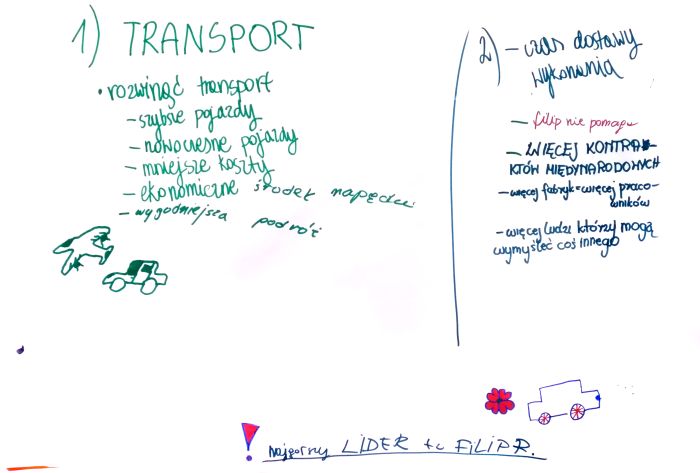 1) TRANSPORT
• rozwinąć transport
– szybsze pojazdy
– nowoczesne pojazdy
– mniejsze koszty
– ekonomiczne środek napędu
– wygodniejsza podróż
2) – czas dostawy
wykonania
– filip nie pomaga
– WIĘCEJ KONTRAK-
KTÓW MIĘDYNARODOWYCH
– więcej fabryk = więcej praco-
wników
– więcej ludzi którzy mogą
wymyśleć coś innego
! najgorszy LIDER to FILIP R.